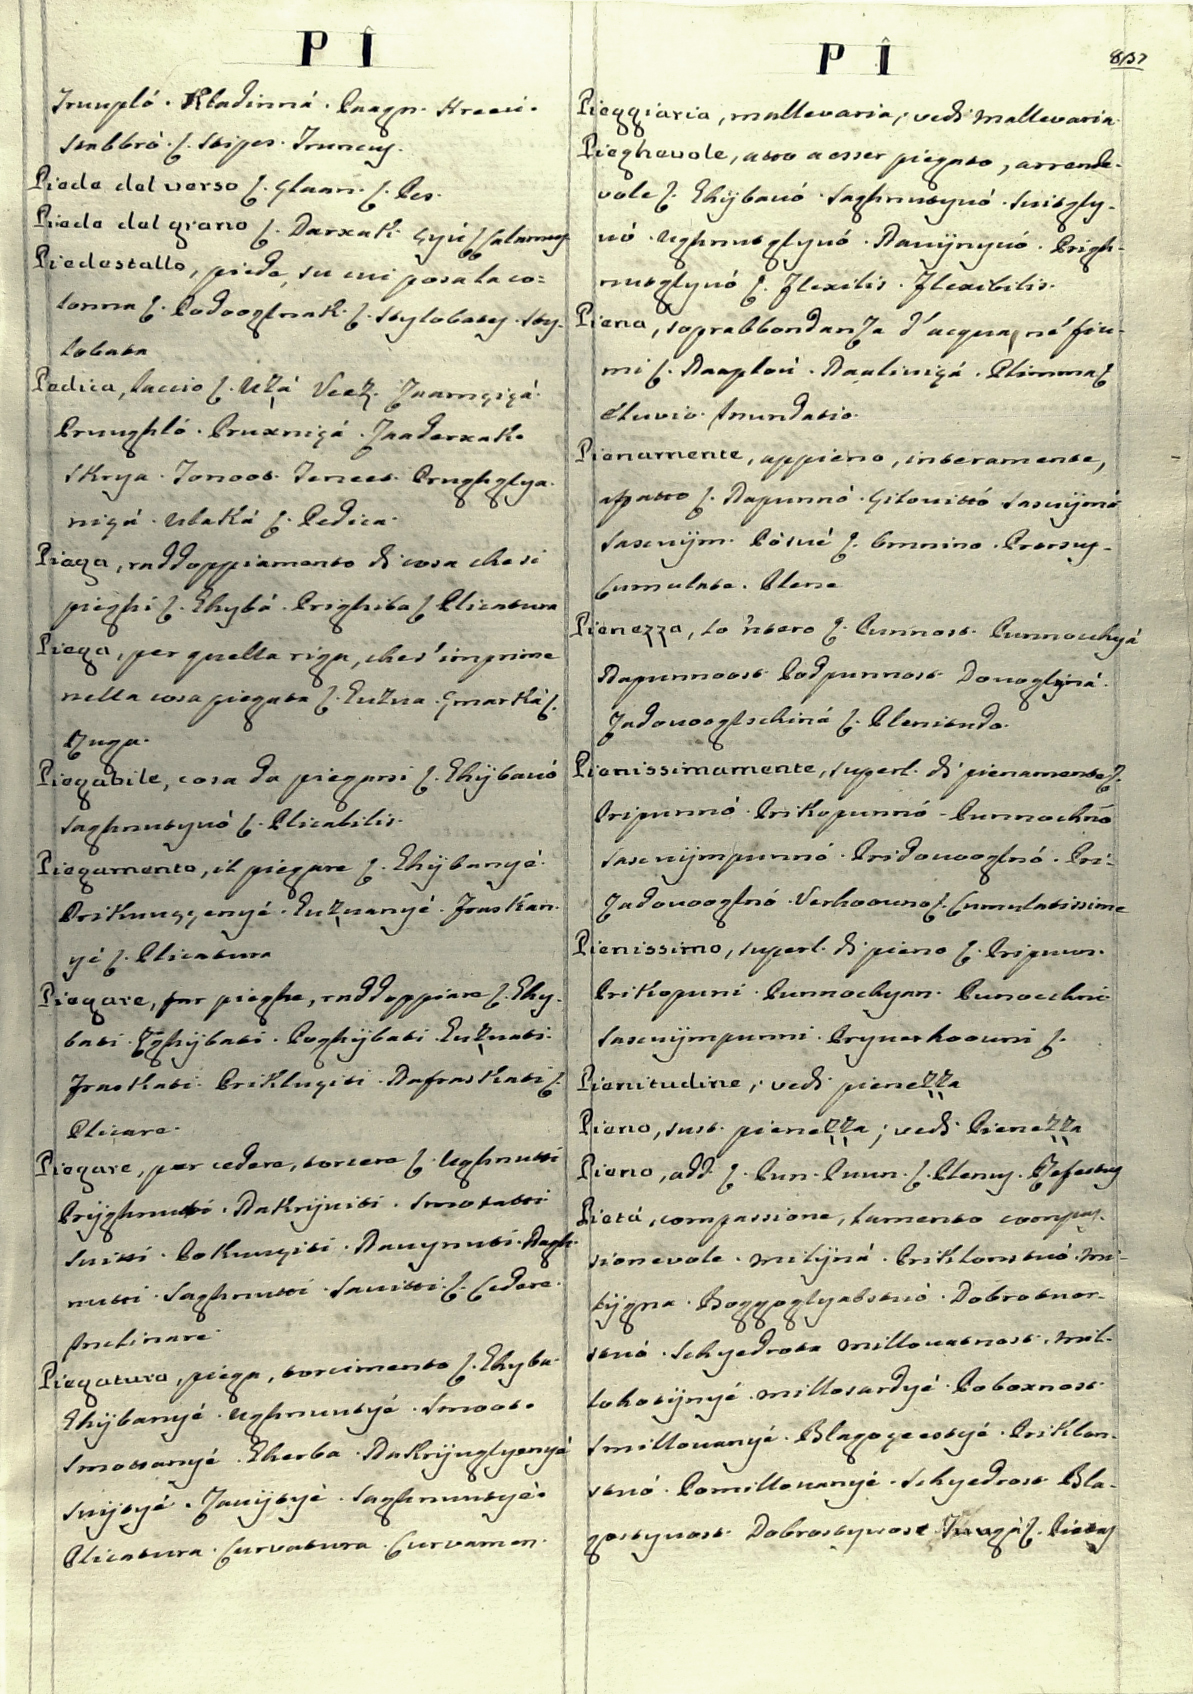 P Î
Truupló. Kladinná. Paagn. Hreeú.
Stabbró. ſ. Stipes. Truncus.
Piede del verso ſ. Glaan. ſ. Pes.
Piede del grano ſ. Darxak.
Piedestallo, piede, su cui posa la co=
lonna ſ. Podooglnak. ſ. Stylobates. Sty-
lobata
Pedica, laccio ſ. Uzá
Pruughló. Pruxniçá. Zaaderxak.
Skrya. Tonoot. Teneet. Prughglya-
niçá. Ulaká ſ. Pedica.
Piega, raddoppiamento di cosa che si
pieghi ſ. Ghybá. Prighiba ſ. Plicatura
Piega, per quella riga, che s'imprime
nella cosa piegata ſ. Guzva. Smarká ſ.
Ruga.
Piegabile, cosa da piegarsi ſ. Ghÿbavó
Saghnutyvó ſ. Plicabilis.
Piegamento, il piegare ſ. Ghÿbanyé.
Guzvanyé. Fraskan-
yé ſ. Plicatura
Piegare, far pieghe, raddoppiare ſ. Ghy-
bati. Zghÿbati. Poghÿbati. Guzvati.
Fraskati. Priklugiti. Nafraskati ſ.
Plicare.
Piegare, per cedere, torcere ſ. Ughnutti
Prÿghnutti. Nakrÿviti. Smotatti
Svitti. Pokuçiti. Navynuti. Nagh-
nutti. Saghnutti. Savitti. ſ. Cedere.
Inclinare.
Piegatura, piega, torcimento ſ. Ghyba.
Ghÿbanyé. Ughnuutyé. Smoot.
Smottanyé. Gherba. Nakrÿuglyenyé
Svÿtyé. Zavÿtyé. Saghnuutyé.
Plicatura. Curvatura. Curvamen.
P Î
837
Pieggiaria, mallevaria; vedi Mallevaria
Pieghevole, atto a esser piegato, arrende-
vole ſ. Ghÿbavó. Saghnutyvó. Svitgly-
vó. Ughnutglyvó. Navÿnyvó. Prigh-
nutglyvó ſ. Flexilis. Flexibilis.
Piena, soprabbondanza d'acqua, né fiu-
mi ſ. Naaplov. Naaliviçá. Plimma ſ.
Eluvio. Inundatio.
Pienamente, appieno, interamente,
affatto ſ. Napunnó. Çilovittó Sascvÿmá
Sascvÿm. Pósvé ſ. Omnino. Prorsus.
Cumulate. Plene
Pienezza, lo 'ntero ſ. Punnost. Punnochyá
Napunnoost Podpunnost Dovoglyná.
Zadovooglschiná ſ. Plenitudo.
Pienissimamente, superl. di pienamente ſ.
Pripunnó. Prikopunnó. Punnochnó
Sascvÿmpunnó. Pridovooglnó. Pri-
Zadovooglnó. Verhoovno ſ. Cumulatissime
Pienissimo, superl. di pieno ſ. Pripuun.
Prikopuni. Punnochyan. Punocchni
Sascvÿmpunni. Pryverhoovni ſ.
Pienitudine; vedi pienezza
Pieno, sust. pienezza; vedi Pienezza
Pieno, add. ſ. Pun. Puun. ſ. Plenus. Refertus
Pietá, compassione, lamento compas-
sionevole. Milÿná. Priklonstvó. Mi-
tÿgna. Boggoglyubstvó. Dobrotvor-
stvó. Schyedrota Millovatnost. Mil-
lohotÿnyé. Millosardyé. Poboxnost.
Smillovanyé. Blagoçeestyé. Priklon-
stvó. Pomillovanyé. Schyedrost. Bla-
gostyvost. Dobrostyvost ſ. Pietas